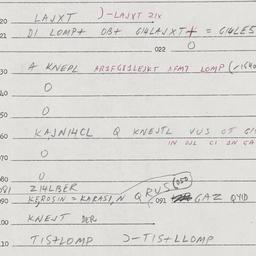 20 LAJXT )-LAJXT ZIX
21 DI LOMP+ OB+ GI4LAJXT+ = GI4LE5
022 O
30 A KNEPL AR1FG81LEJKT AFM7 LOMP
40 O
50 O
60 KAJNI4CL Q KNEJTL VUS OT GI
IN OJL CI AN GA
70 O
80 O
081 ZI4LBER
090 KEROSIN = KARASI,N QRVS 050 091 GAZ QYID
00 KNEJT DER
10 TIS+LOMP )-TIS+LLOMP